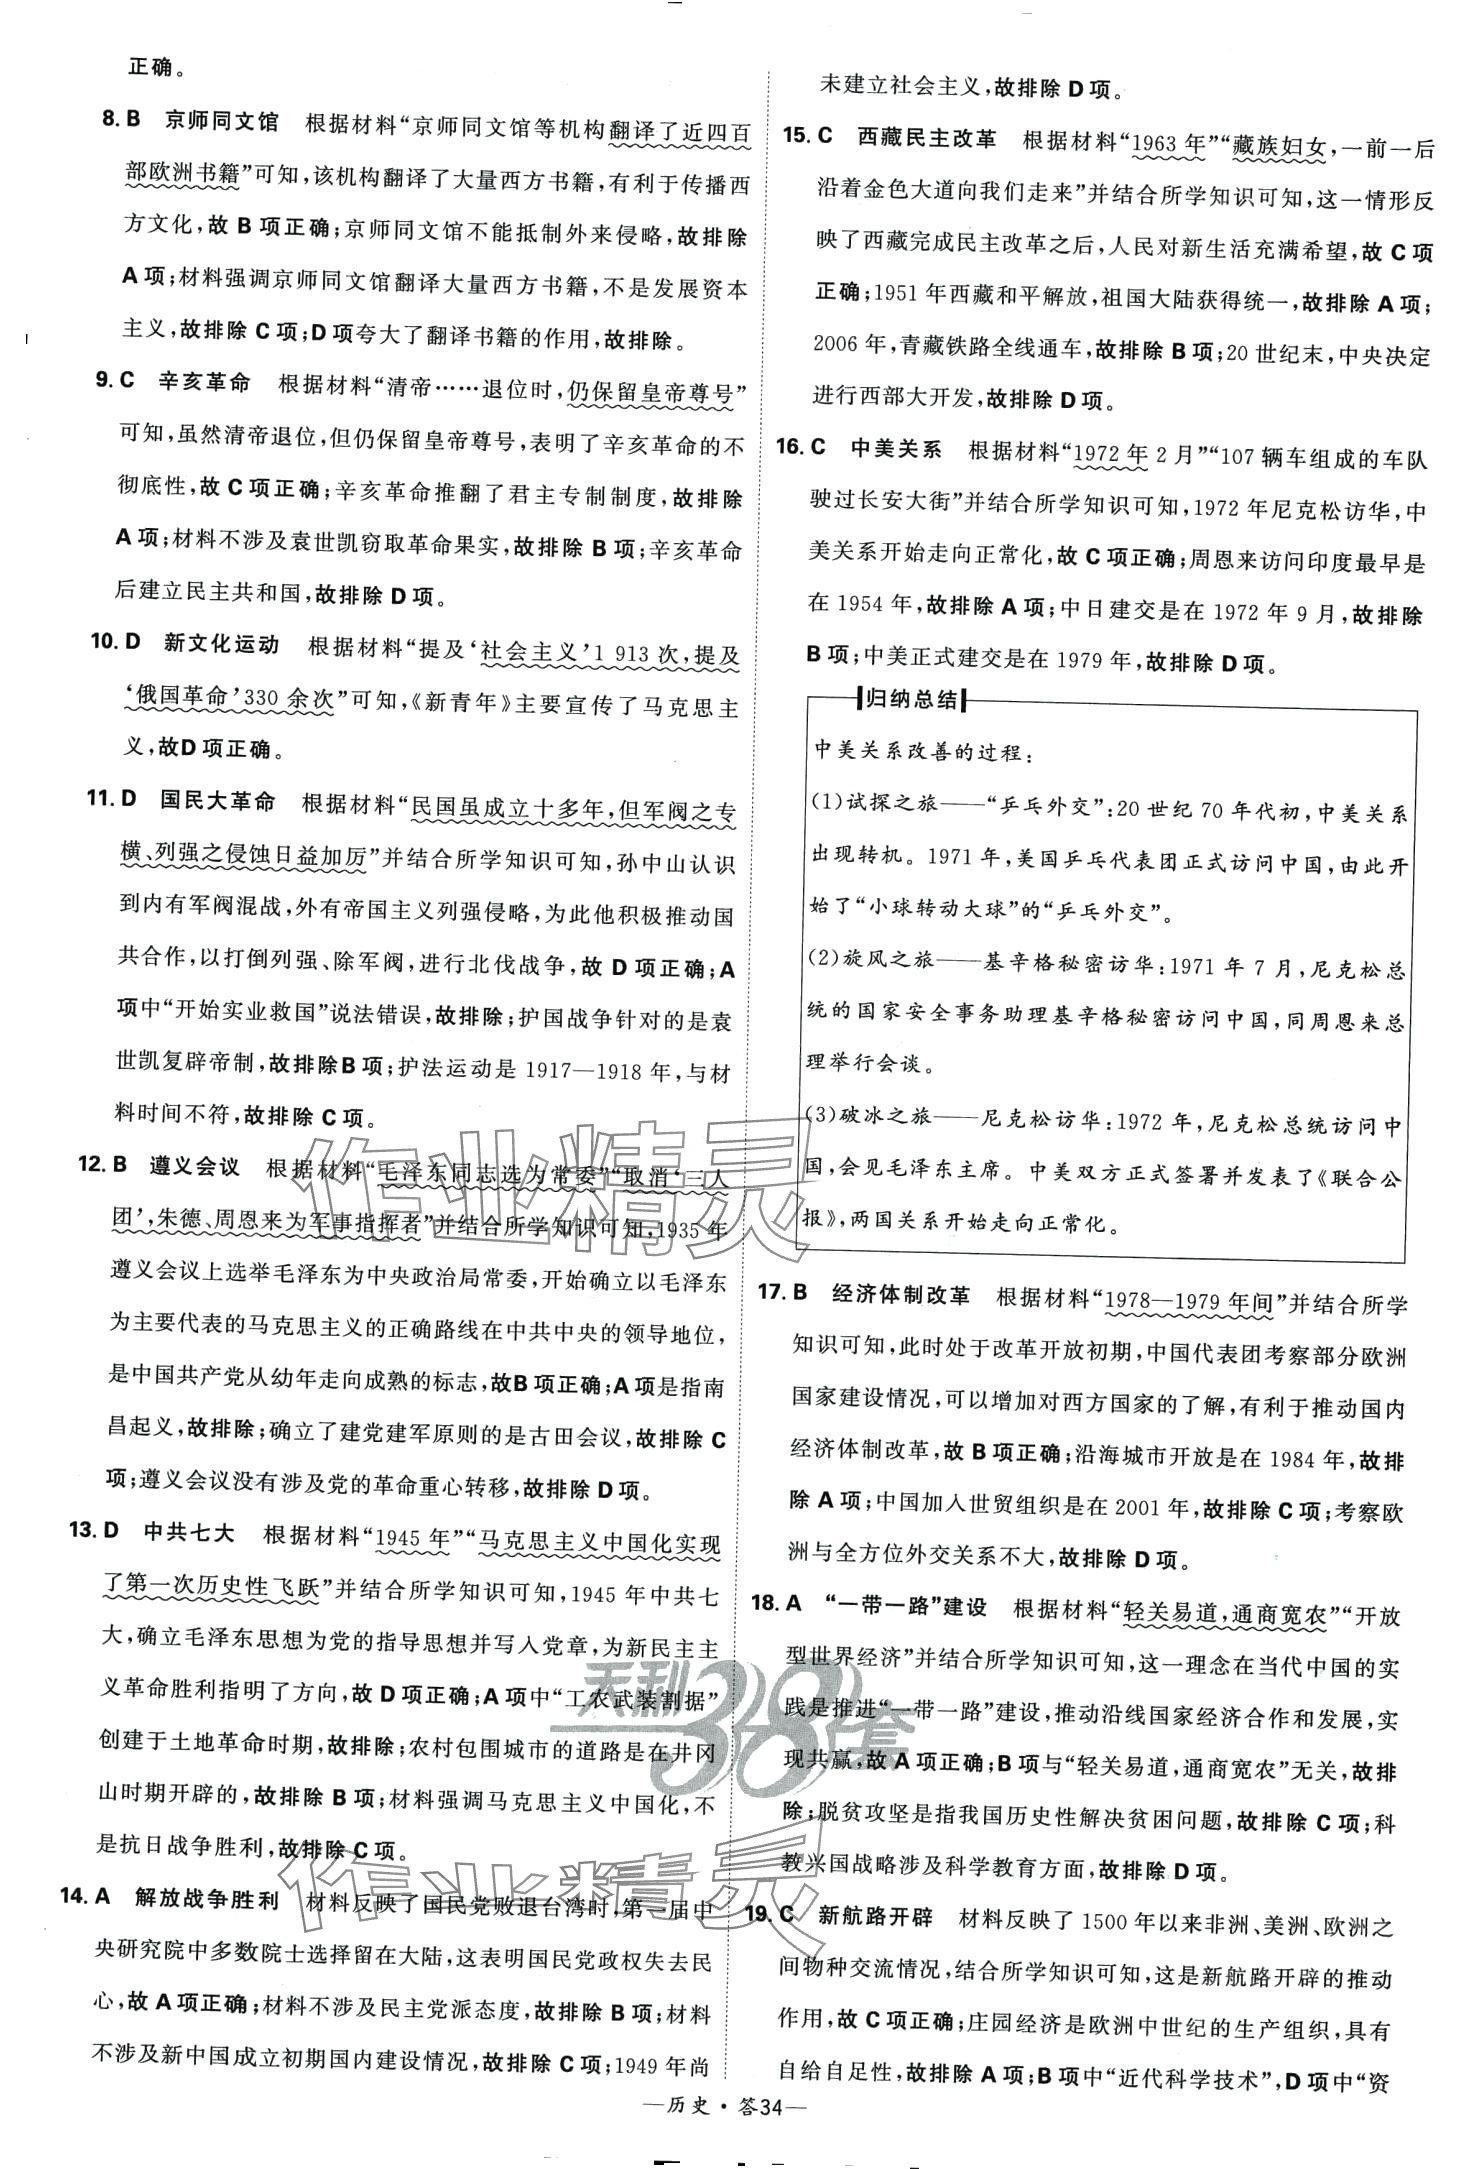 正确。
8. B　京师同文馆　根据材料“京师同文馆等机构翻译了近四百
部欧洲书籍”可知,该机构翻译了大量西方书籍,有利于传播西
方文化,故 B 项正确;京师同文馆不能抵制外来侵略,故排除
A 项;材料强调京师同文馆翻译大量西方书籍,不是发展资本
主义,故排除 C 项;D 项夸大了翻译书籍的作用,故排除。
9. C　辛亥革命　根据材料“清帝……退位时,仍保留皇帝尊号”
可知,虽然清帝退位,但仍保留皇帝尊号,表明了辛亥革命的不
彻底性,故 C 项正确;辛亥革命推翻了君主专制制度,故排除
A 项;材料不涉及袁世凯窃取革命果实,故排除 B 项;辛亥革命
后建立民主共和国,故排除 D 项。
10. D　新文化运动　根据材料“提及‘社会主义’1 913 次,提及
‘俄国革命’330 余次”可知,《新青年》主要宣传了马克思主
义,故D 项正确。
11. D　国民大革命　根据材料“民国虽成立十多年,但军阀之专
横、列强之侵蚀日益加厉”并结合所学知识可知,孙中山认识
到内有军阀混战,外有帝国主义列强侵略,为此他积极推动国
共合作,以打倒列强、除军阀,进行北伐战争,故 D 项正确;A
项中“开始实业救国”说法错误,故排除;护国战争针对的是袁
世凯复辟帝制,故排除B 项;护法运动是 1917—1918 年,与材
料时间不符,故排除 C 项。
12. B　遵义会议　根据材料“毛泽东同志选为常委”“取消‘三人
团’,朱德、周恩来为军事指挥者”并结合所学知识可知,1935 年
遵义会议上选举毛泽东为中央政治局常委,开始确立以毛泽东
为主要代表的马克思主义的正确路线在中共中央的领导地位,
是中国共产党从幼年走向成熟的标志,故B 项正确;A项是指南
昌起义,故排除;确立了建党建军原则的是古田会议,故排除 C
项;遵义会议没有涉及党的革命重心转移,故排除 D 项。
13. D　中共七大　根据材料“1945 年”“马克思主义中国化实现
了第一次历史性飞跃”并结合所学知识可知,1945 年中共七
大,确立毛泽东思想为党的指导思想并写入党章,为新民主主
义革命胜利指明了方向,故 D 项正确;A 项中“工农武装割据”
创建于土地革命时期,故排除;农村包围城市的道路是在井冈
山时期开辟的,故排除 B 项;材料强调马克思主义中国化,不
是抗日战争胜利,故排除 C 项。
14. A　解放战争胜利　材料反映了国民党败退台湾时,第一届中
央研究院中多数院士选择留在大陆,这表明国民党政权失去民
心,故 A 项正确;材料不涉及民主党派态度,故排除 B 项;材料
不涉及新中国成立初期国内建设情况,故排除 C 项;1949 年尚
未建立社会主义,故排除 D 项。
15. C　西藏民主改革　根据材料“1963 年”“藏族妇女,一前一后
沿着金色大道向我们走来”并结合所学知识可知,这一情形反
映了西藏完成民主改革之后,人民对新生活充满希望,故 C 项
正确;1951 年西藏和平解放,祖国大陆获得统一,故排除 A 项;
2006 年,青藏铁路全线通车,故排除 B 项;20 世纪末,中央决定
进行西部大开发,故排除 D 项。
16. C　中美关系　根据材料“1972 年 2 月”“107 辆车组成的车队
驶过长安大街”并结合所学知识可知,1972 年尼克松访华,中
美关系开始走向正常化,故 C 项正确;周恩来访问印度最早是
在 1954 年,故排除 A 项;中日建交是在 1972 年 9 月,故排除
B 项;中美正式建交是在 1979 年,故排除 D 项。
归纳总结
中美关系改善的过程:
(1)试探之旅——“乒乓外交”:20 世纪 70 年代初,中美关系
出现转机。1971 年,美国乒乓代表团正式访问中国,由此开
始了“小球转动大球”的“乒乓外交”。
(2)旋风之旅——基辛格秘密访华:1971 年 7 月,尼克松总
统的国家安全事务助理基辛格秘密访问中国,同周恩来总
理举行会谈。
(3)破冰之旅——尼克松访华:1972 年,尼克松总统访问中
国,会见毛泽东主席。中美双方正式签署并发表了《联合公
报》,两国关系开始走向正常化。
17. B　经济体制改革　根据材料“1978—1979 年间”并结合所学
知识可知,此时处于改革开放初期,中国代表团考察部分欧洲
国家建设情况,可以增加对西方国家的了解,有利于推动国内
经济体制改革,故 B 项正确;沿海城市开放是在 1984 年,故排
除 A 项;中国加入世贸组织是在 2001 年,故排除 C 项;考察欧
洲与全方位外交关系不大,故排除 D 项。
18. A　“一带一路”建设　根据材料“轻关易道,通商宽农”“开放
型世界经济”并结合所学知识可知,这一理念在当代中国的实
践是推进“一带一路”建设,推动沿线国家经济合作和发展,实
现共赢,故 A 项正确;B 项与“轻关易道,通商宽农”无关,故排
除;脱贫攻坚是指我国历史性解决贫困问题,故排除 C 项;科
教兴国战略涉及科学教育方面,故排除 D 项。
19. C　新航路开辟　材料反映了 1500 年以来非洲、美洲、欧洲之
间物种交流情况,结合所学知识可知,这是新航路开辟的推动
作用,故 C 项正确;庄园经济是欧洲中世纪的生产组织,具有
自给自足性,故排除 A 项;B 项中“近代科学技术”,D 项中“资
—历史·答34—
作业精灵
天利38套
作业精灵